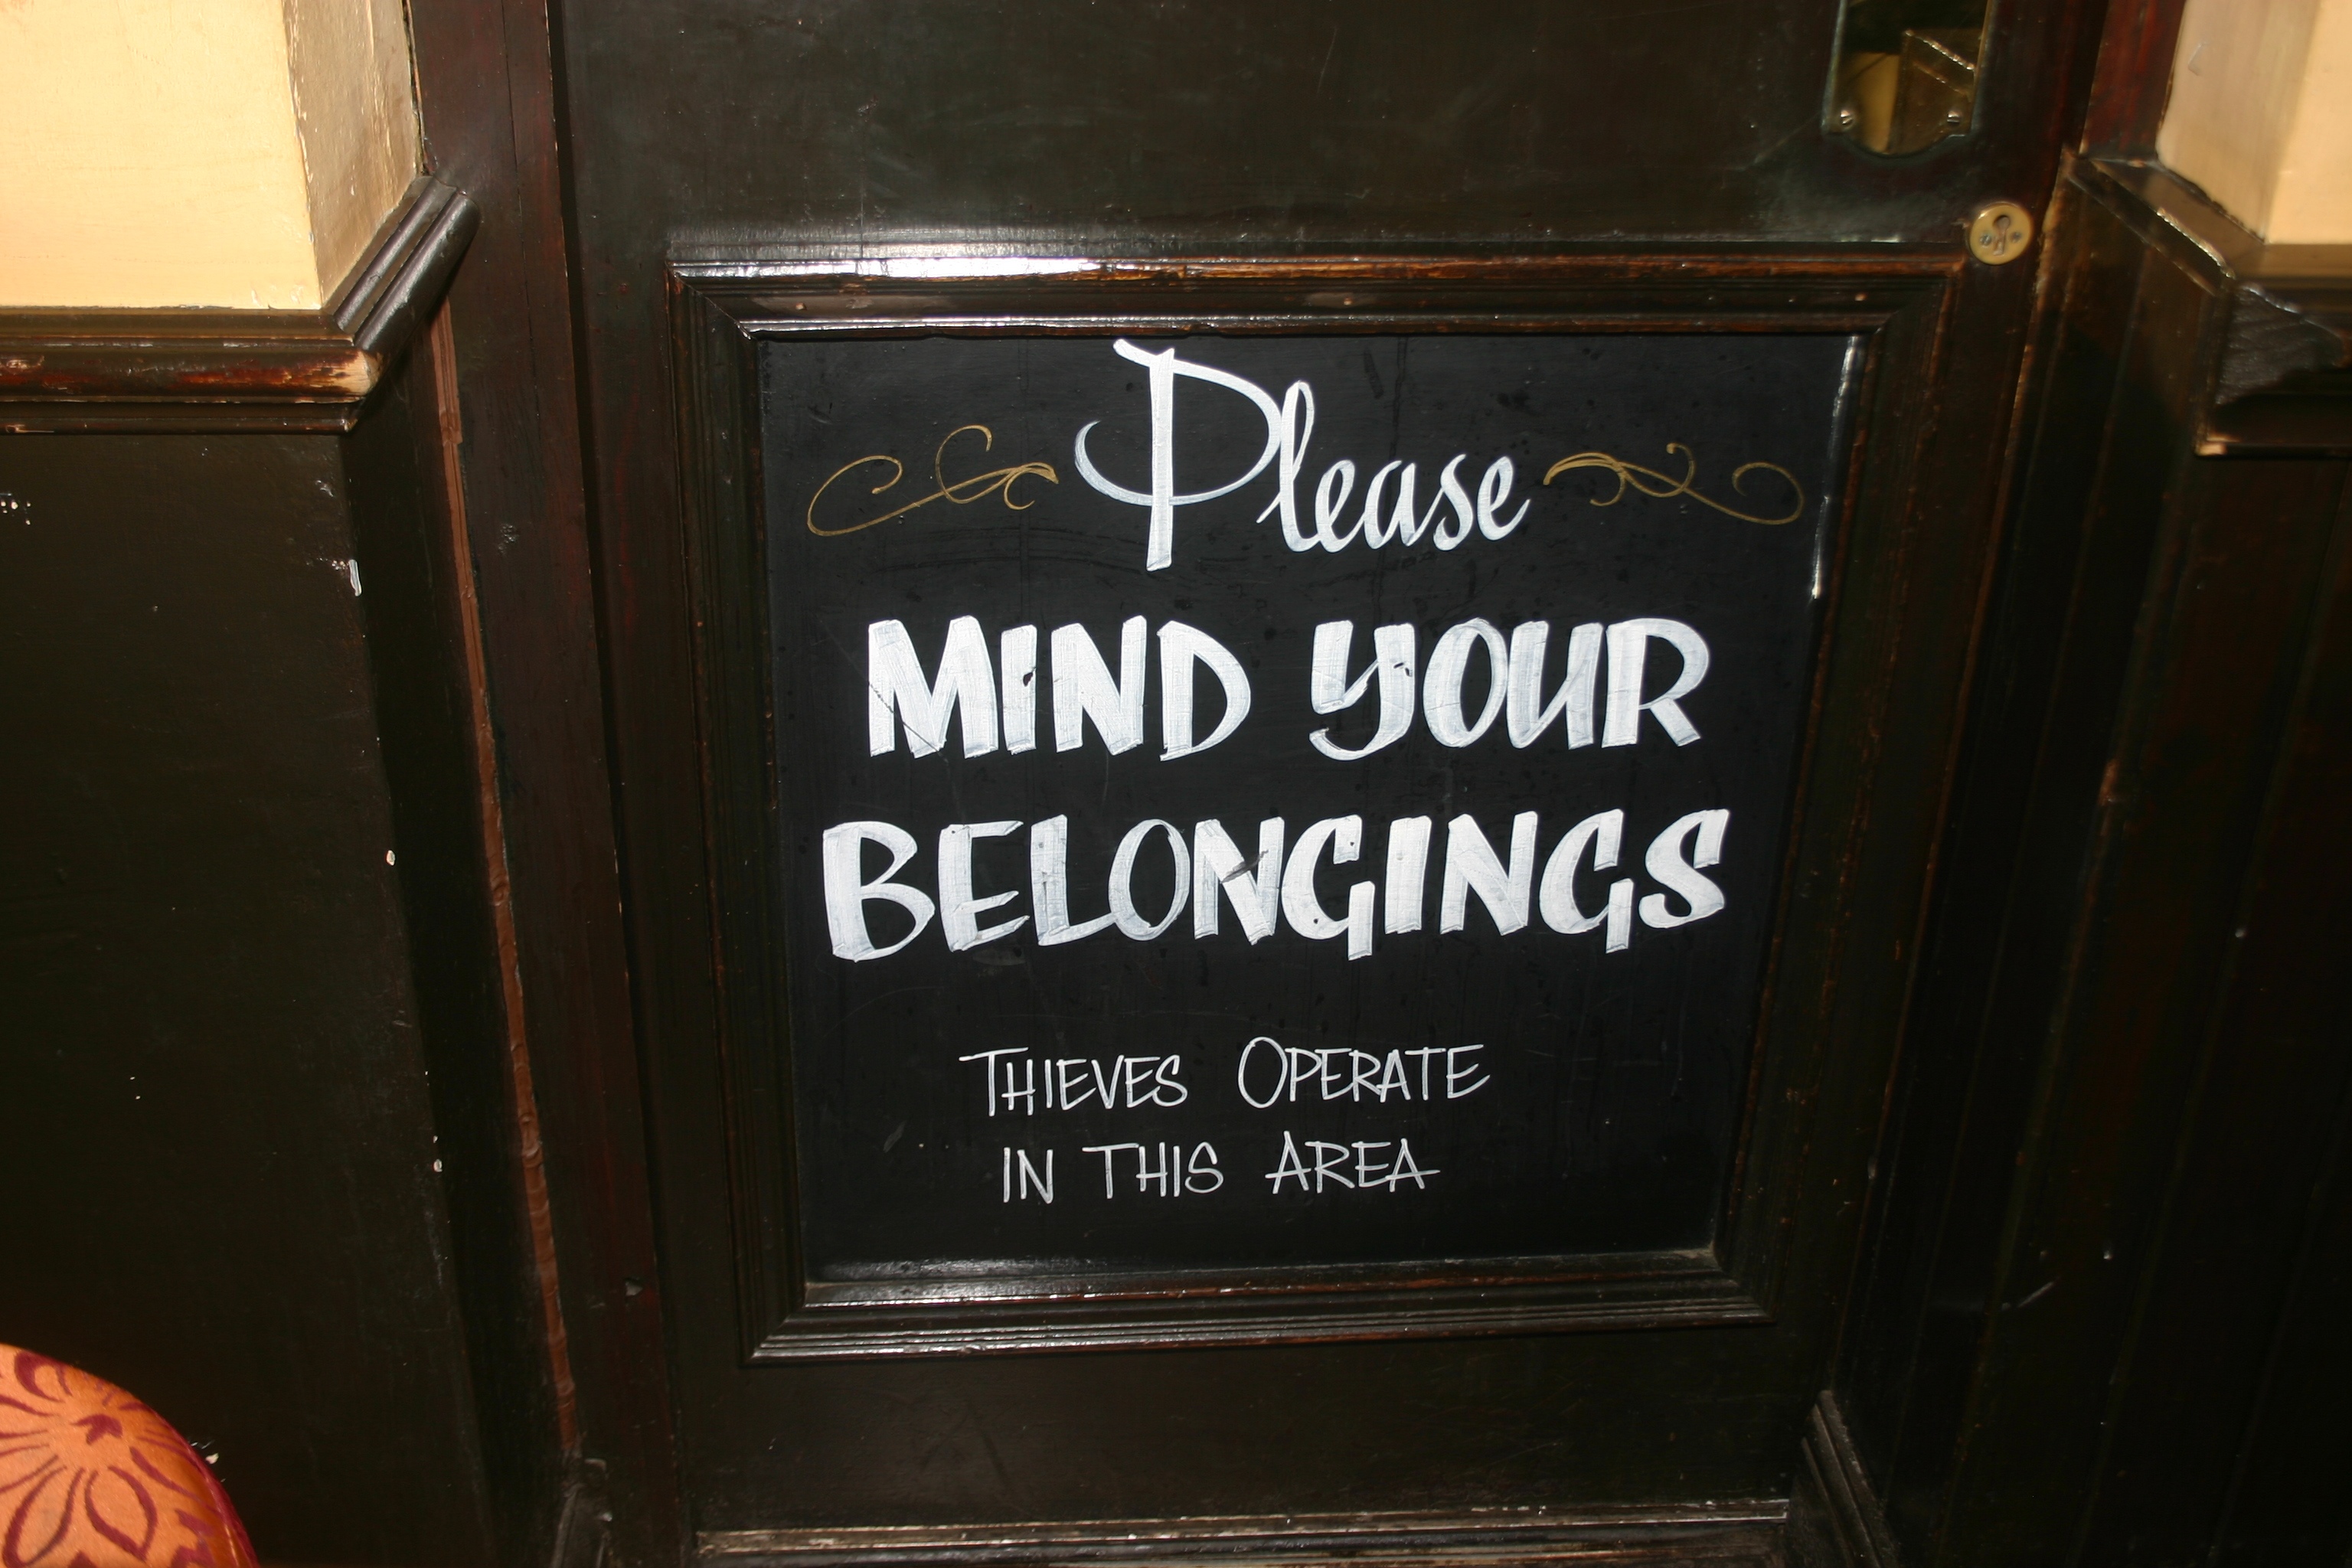 Please
MIND YOUR
BELONGINGS
THIEVES OPERATE
IN THIS AREA